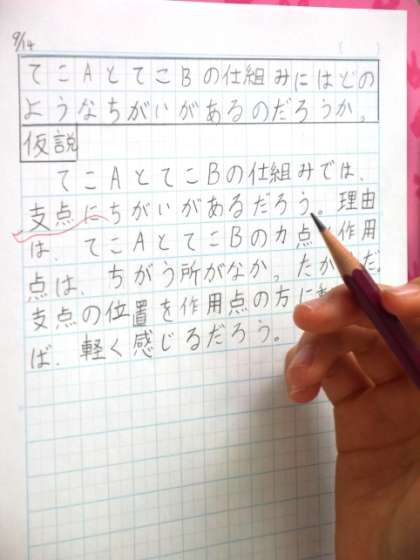 9/14
てこAとてこBの仕組みにはどの
ようなちがいがあるのだろうか。
仮説
てこAとてこBの仕組みでは、
支点にちがいがあるだろう。理由
は、てこAとてこBの力点 作用
点は、ちがう所がなか。たか だ。
支点の位置を作用点の方に
ば、軽く感じるだろう。